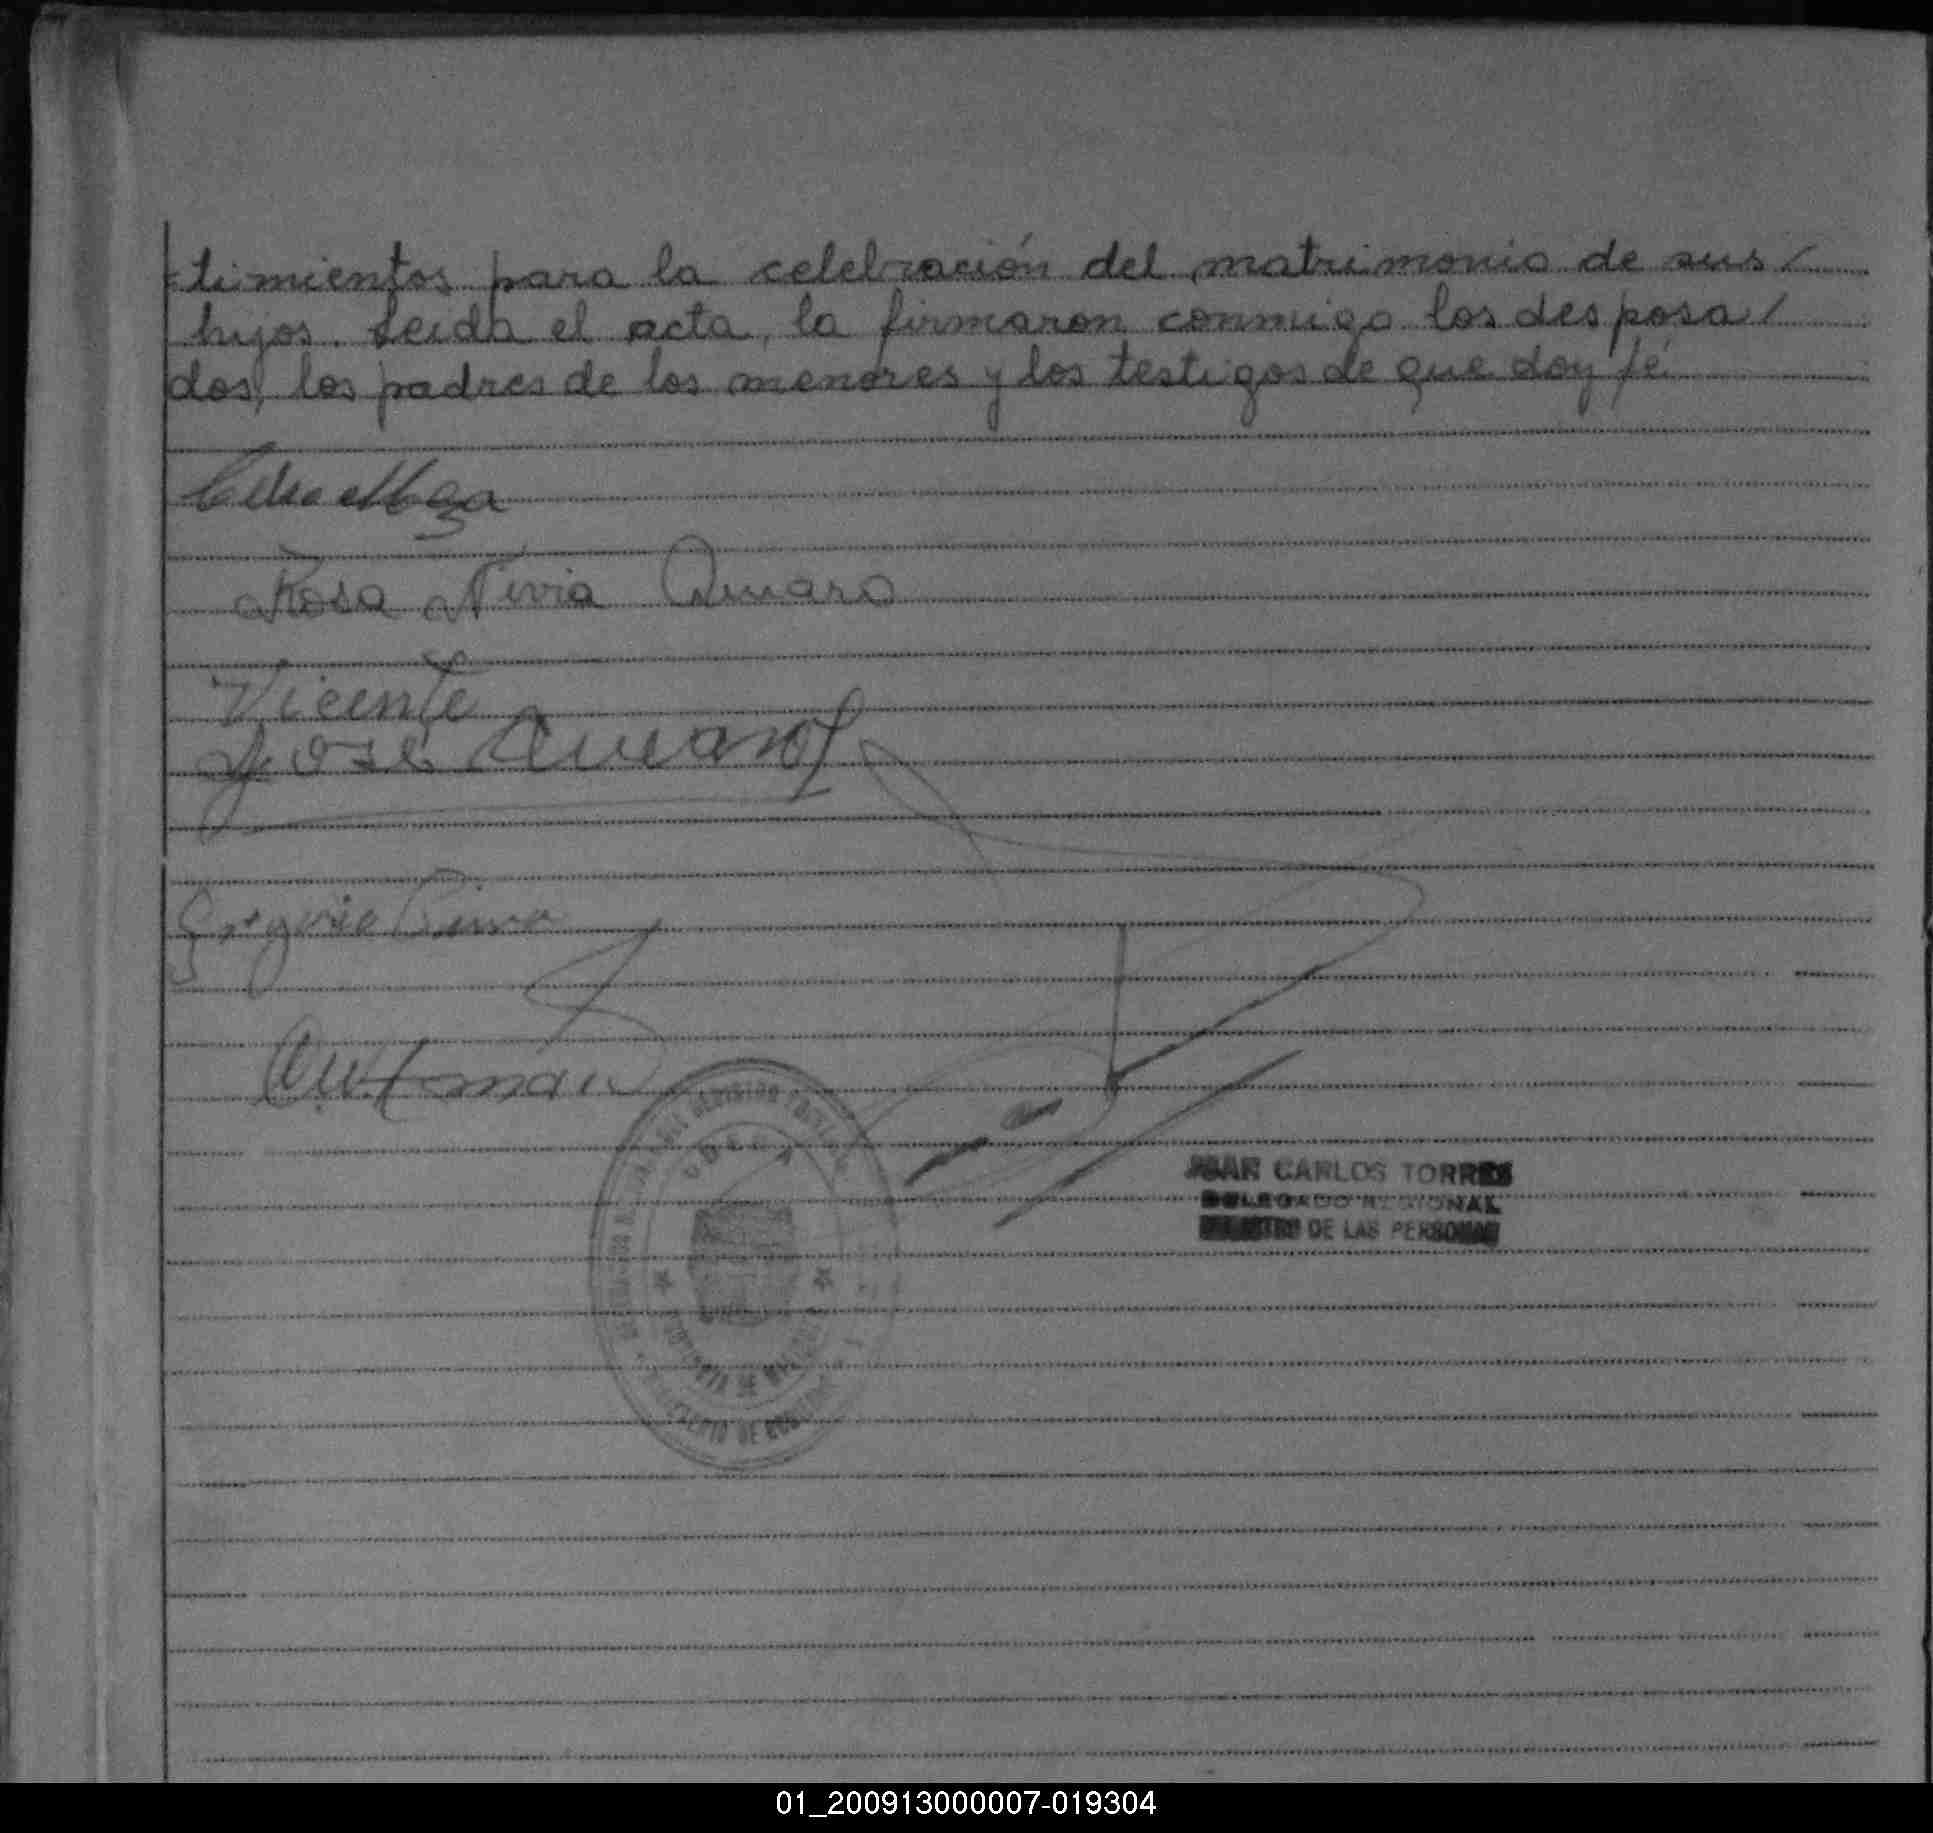 timientos para la celebración del matrimonio de sus /
hijos. Leída el acta, la firmaron conmigo los desposa /
dos, los padres de los menores y los testigos de que doy fé
Rosa Nivia Amaro
Vicente
José Amaro
Gregorio
JUAN CARLOS TORRES
DELEGADO REGIONAL
REGISTRO DE LAS PERSONAS
PROVINCIA DE
01_200913000007-019304